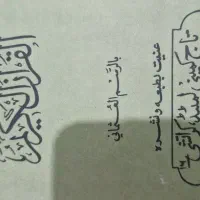 القرآن الكريم
بالرسم العثماني
عنيت بطبعه ونشره
تاج كمپنی لمیٹڈ کراتشی